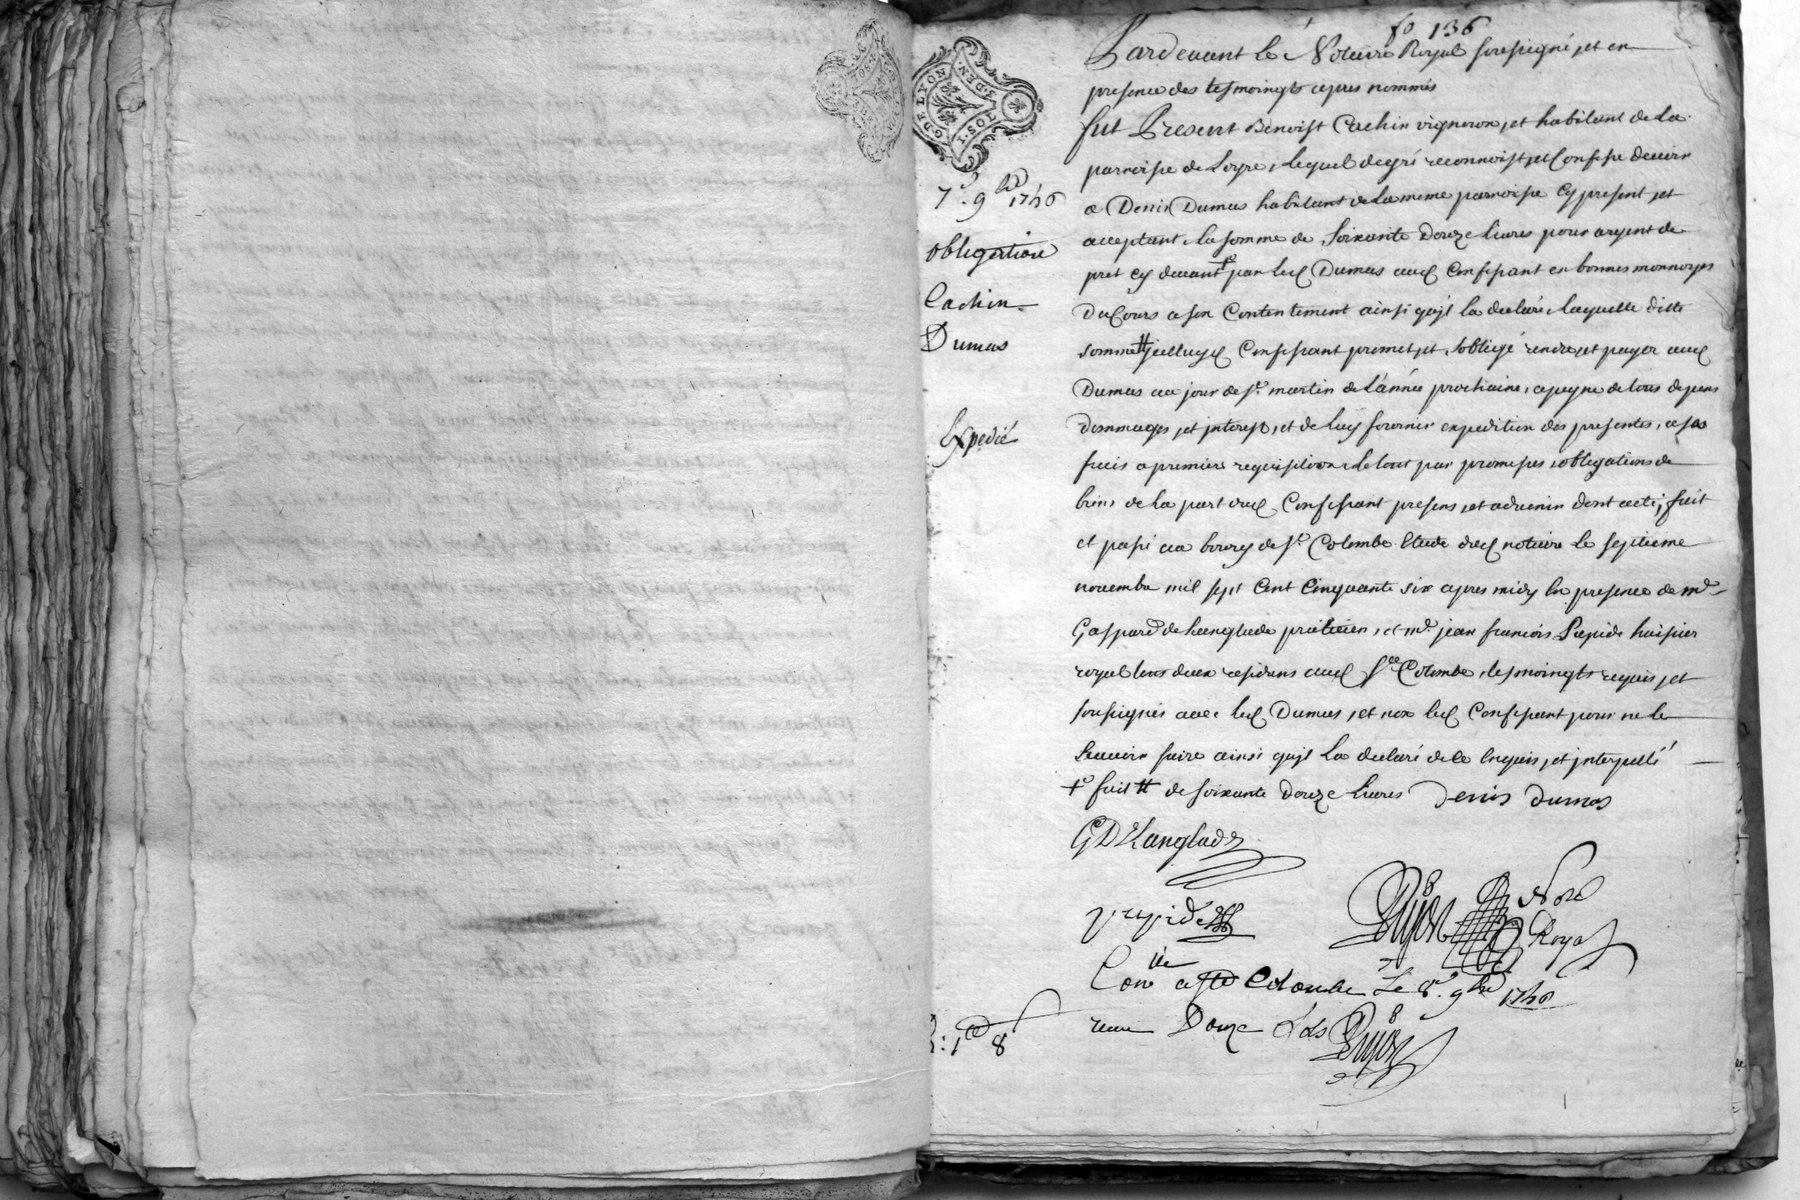 fo 136
G. DE LYON
1. SOL 3. DEN.
7e. 9bre 1756
obligation
Cachin
Dumas
Expedié
Pardevant le Notaire Royal soussigné, et en
presence des tesmoingts apres nommés
fut Present Benoist Cachin vigneron, et habitant de la
parroisse de Loyre, lequel de gré reconnoist, et Confesse devoir
a Denis Dumas habitant de la meme parroisse Cy present, et
acceptant, la somme de soixante douze livres pour argent de
pret Cy devant + par led Dumas aud Confessant en bonnes monnoyes
Du Cours a son Contentement ainsi qu'jl la declaré, laquelle ditte
somme # jcelluy d Confessant promet, et s'obligé rendre, et payer aud
Dumas au jour de St. martin de L'année prochaine, a peyne de tous depens
dommages, et jnterest, et de Luy fournir expedition des presentes, a ses
frais a premiere requisition, le tout par promesses, obligations de
biens de la part dud Confessant presens, et advenir dont acte, fait
et passé au bourg de Ste. Colombe Etude dud notaire le septieme
novembre mil sept Cent Cinquante six apres midy En presence de mr.
Gaspard de Langlade praticien, et mr. jean francois Prepide huissier
royal tous deux residens aud Ste Colombe, tesmoingts requis, et
soussignés avec led Dumas, et non led Confessant pour ne le
sçavoir faire ainsi qu'jl la declaré de ce Enquis, et jnterpellé
+ fait # de soixante douze livres Denis dumas
GDeLanglade
Dujon Nore
Royal
Conlle a ste Colombe Le 8e. 9bre 1756
receu Douze sols Dujon